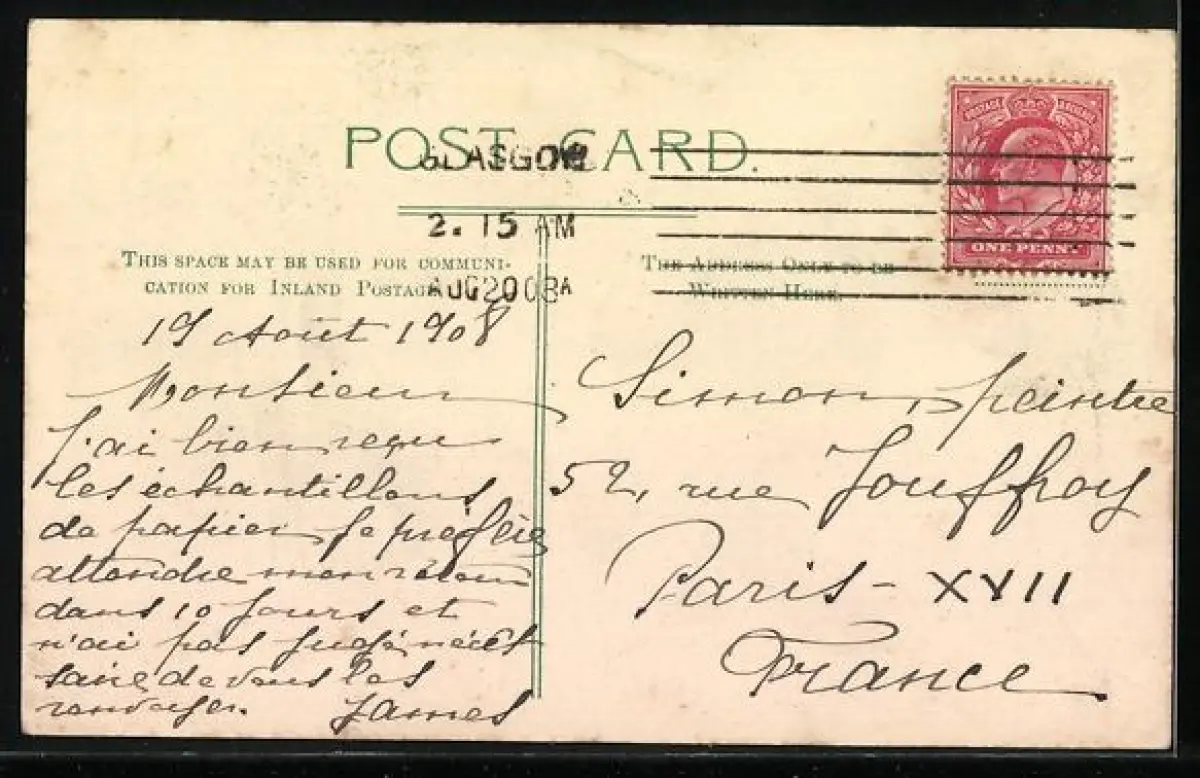 POST CARD.
GLASGOW
2. 15 AM
AUG 20 08A
POSTAGE REVENUE
ONE PENNY
THIS SPACE MAY BE USED FOR COMMUNI-
CATION FOR INLAND POSTAGE
THE ADDRESS ONLY TO BE
WRITTEN HERE.
19 Août 1908
Monsieur
J'ai bien reçu
les échantillons
de papier je préfère
attendre mon retour
dans 10 jours et
n'ai pas jugé néces
saire de vous les
renvoyer. James
Simon, peintre
52, rue Jouffroy
Paris - XVII
France